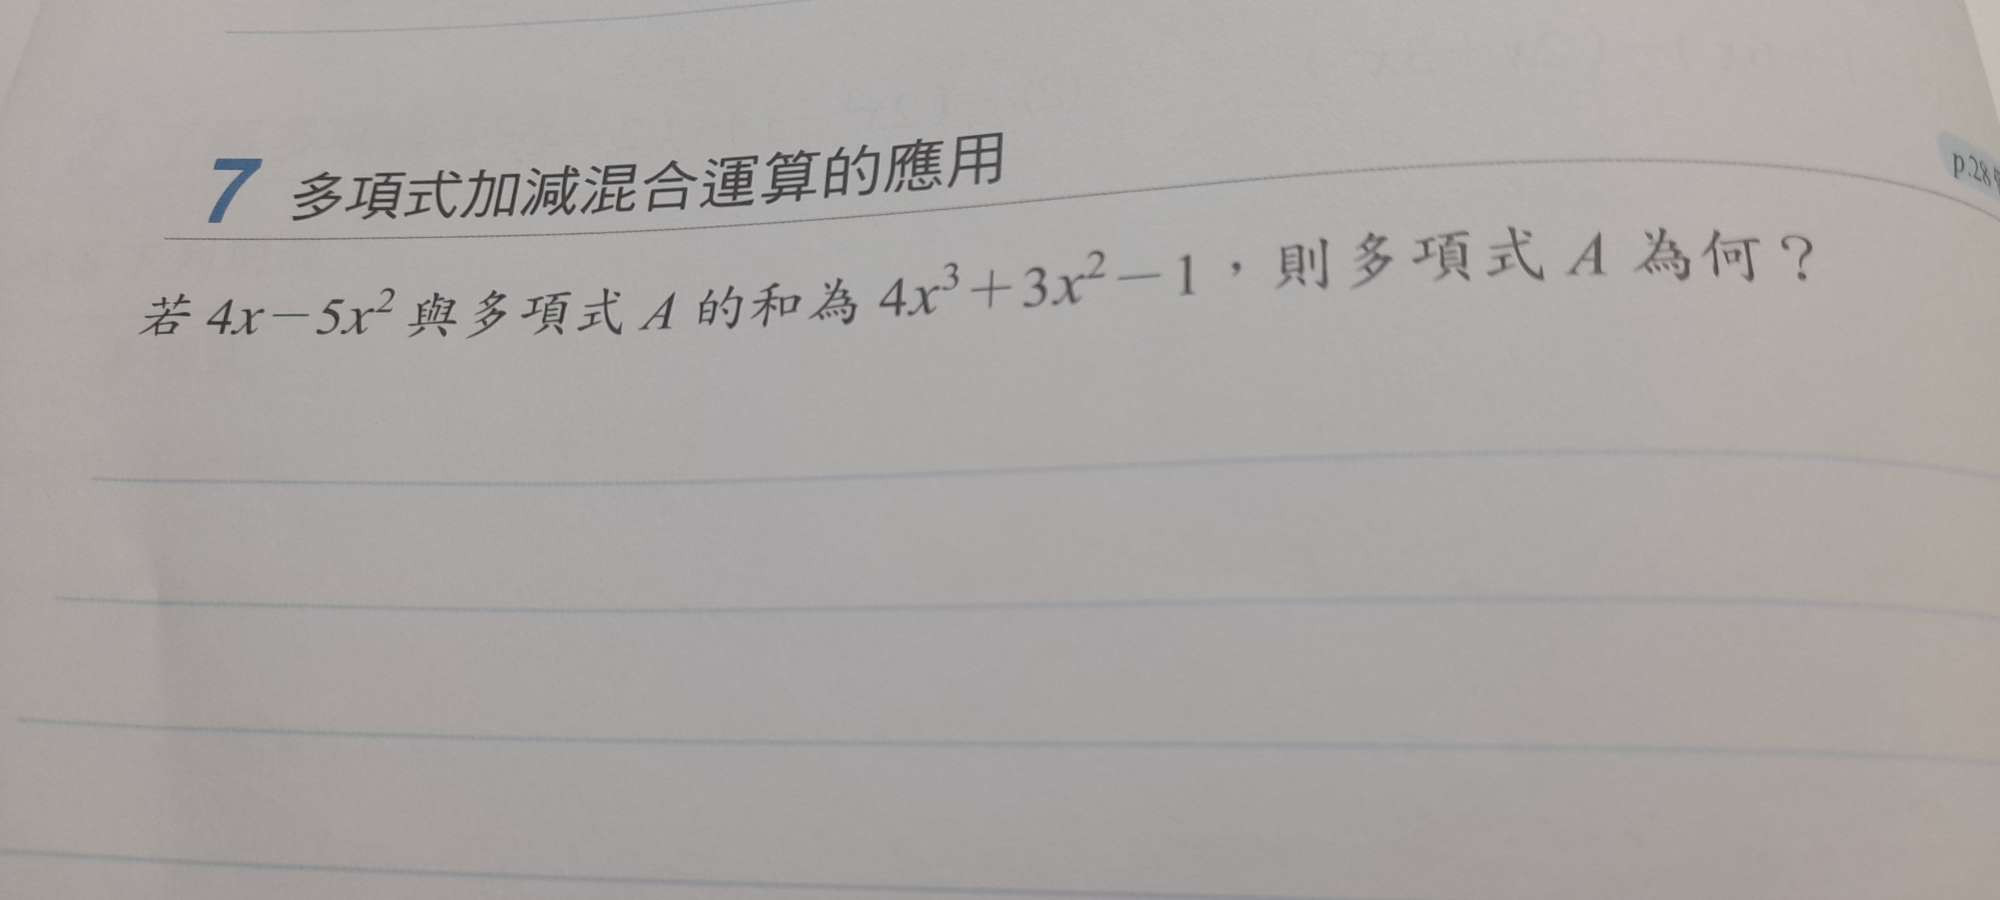 7 多項式加減混合運算的應用
p.28
若 4x－5x² 與多項式 A 的和為 4x³＋3x²－1，則多項式 A 為何？